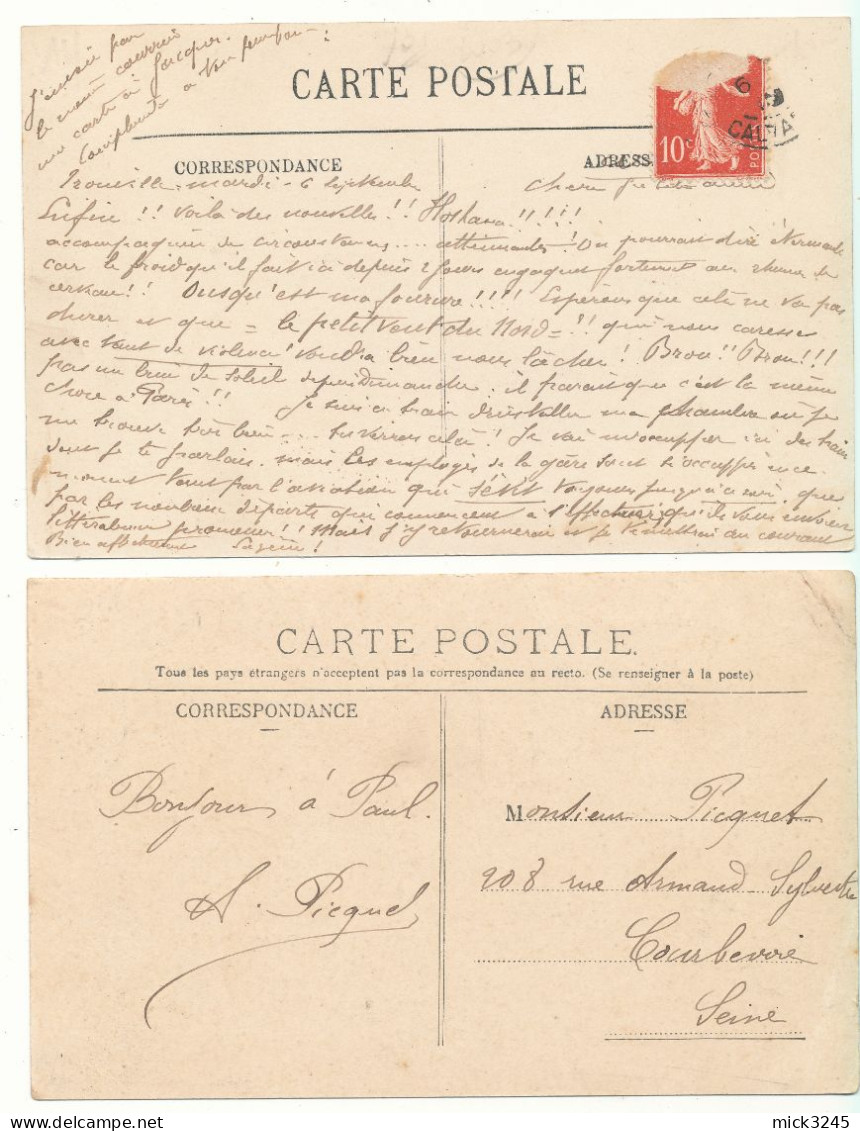 J'envoie par
le même courrier
une carte à Jacques.
Compliments à
CARTE POSTALE
10c
PO
6
CALVA
CORRESPONDANCE
ADRESS
Trouville, mardi - 6 Septembre
Chère petite amie
Enfin!! Voilà des nouvelles!! Hoshana!!!!!
accompagnées de circonstances.... atténuantes! On pourrait dire
car le froid qu'il fait ici depuis 2 jours engagent fortement au rhume de
cerveau!! Ousqu'est ma fourrure!!!! Espérons que cela ne va pas
durer et que = le petit vent du Nord = !! qui nous caresse
avec tant de violence! voudra bien nous lâcher! Brou!! Brou!!!
pas un brin de soleil depuis dimanche, il paraît que c'est la même
chose à Paris!! Je suis en train d'installer ma chambre où je
me trouve très bien... tu verras cela! Je vais m'occuper ici du train
dont je te parlais, mais les employés de la gare sont si occupés en ce
moment tant par l'aviation qui sévit toujours jusqu'à ce soir, que
par les nombreux départs qui commencent à s'effectuer, qu'ils vous envoient
littéralement promener!! Mais j'y retournerai et je te mettrai au courant
Bien affectueux
CARTE POSTALE.
Tous les pays étrangers n'acceptent pas la correspondance au recto. (Se renseigner à la poste)
CORRESPONDANCE
ADRESSE
Bonjour à Paul.
A. Picquet
Monsieur Picquet
208 rue Armand Sylvestre
Courbevoie
Seine
mick3245